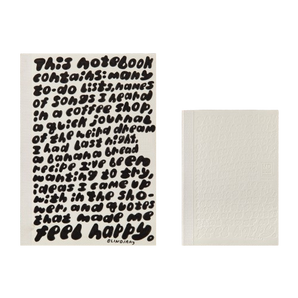 This notebook
contains: many
to-do lists, names
of songs I heard
in a coffee shop,
a quick journal
of the weird dream
I had last night,
a banana bread
recipe I've been
wanting to try,
ideas I came up
with in the sho-
wer, and quotes
that made me
feel happy.